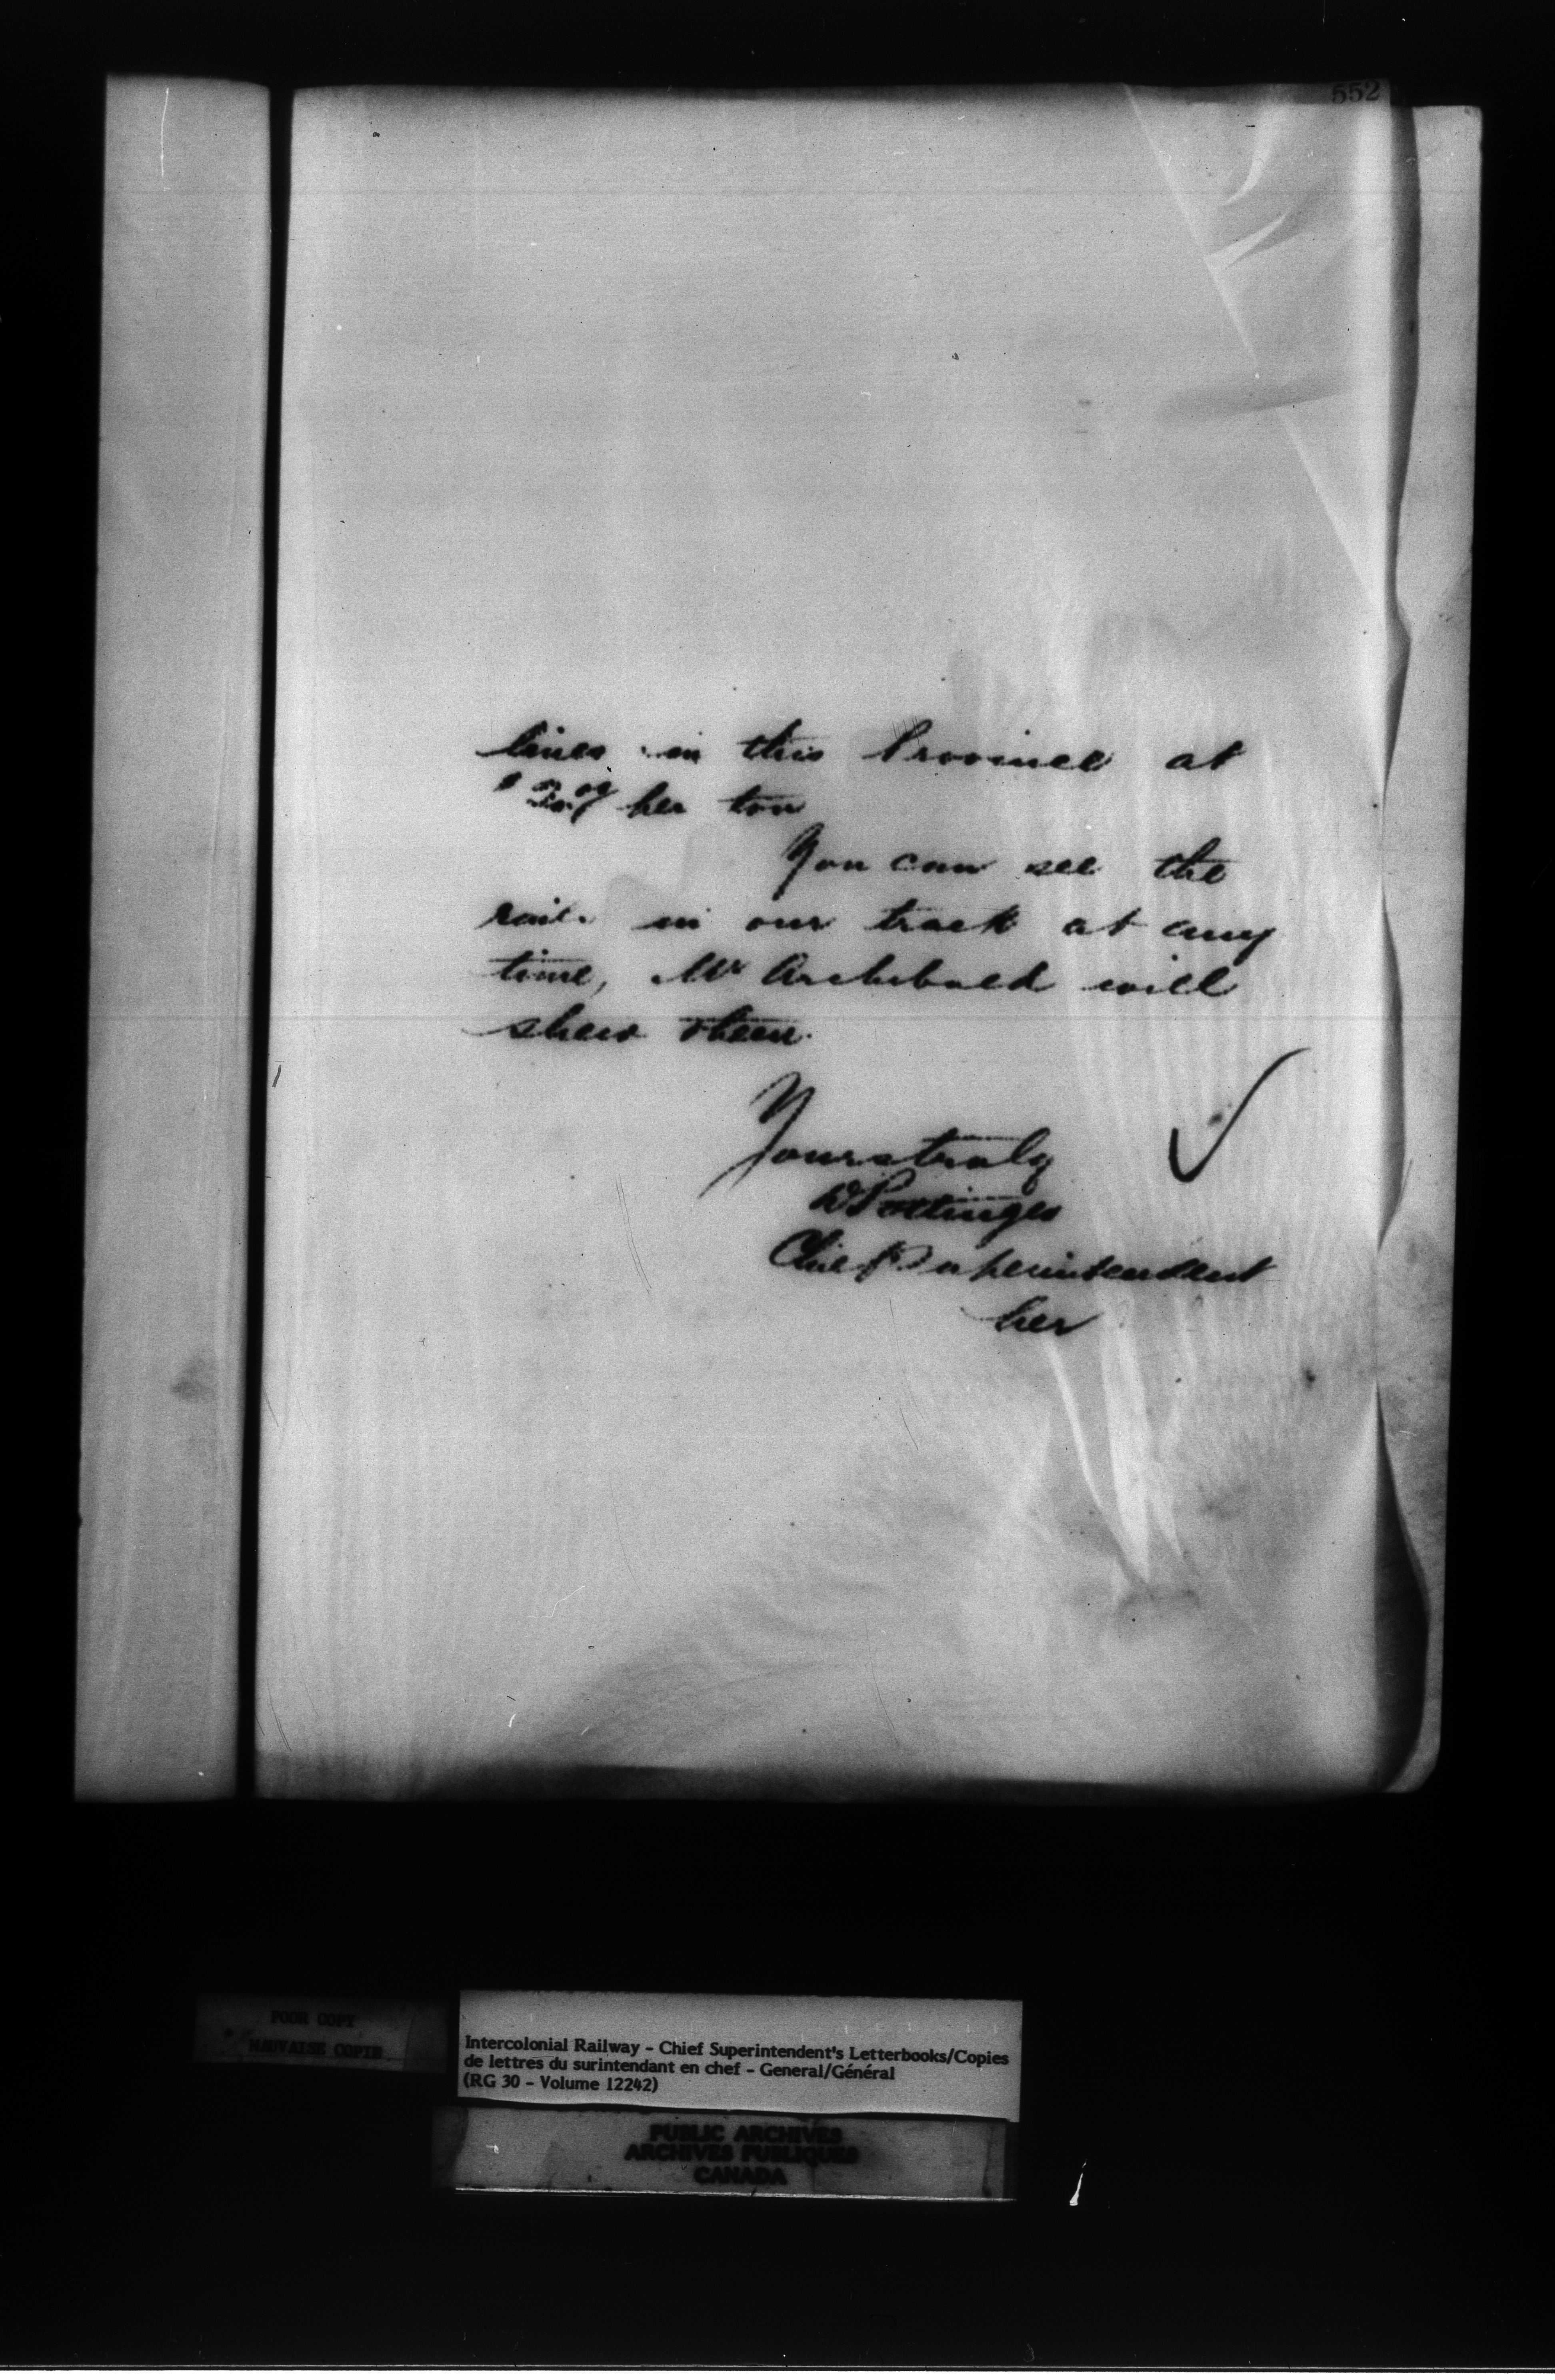 552
lines in this Province at
per ton
You can see the
rails in our track at any
time, Mr Archibald will
shew them.
Yours truly
D Pottinger
Chief Superintendent
per
POOR COPY
MAUVAISE COPIE
Intercolonial Railway - Chief Superintendent's Letterbooks/Copies
de lettres du surintendant en chef - General/Général
(RG 30 - Volume 12242)
PUBLIC ARCHIVES
ARCHIVES PUBLIQUES
CANADA